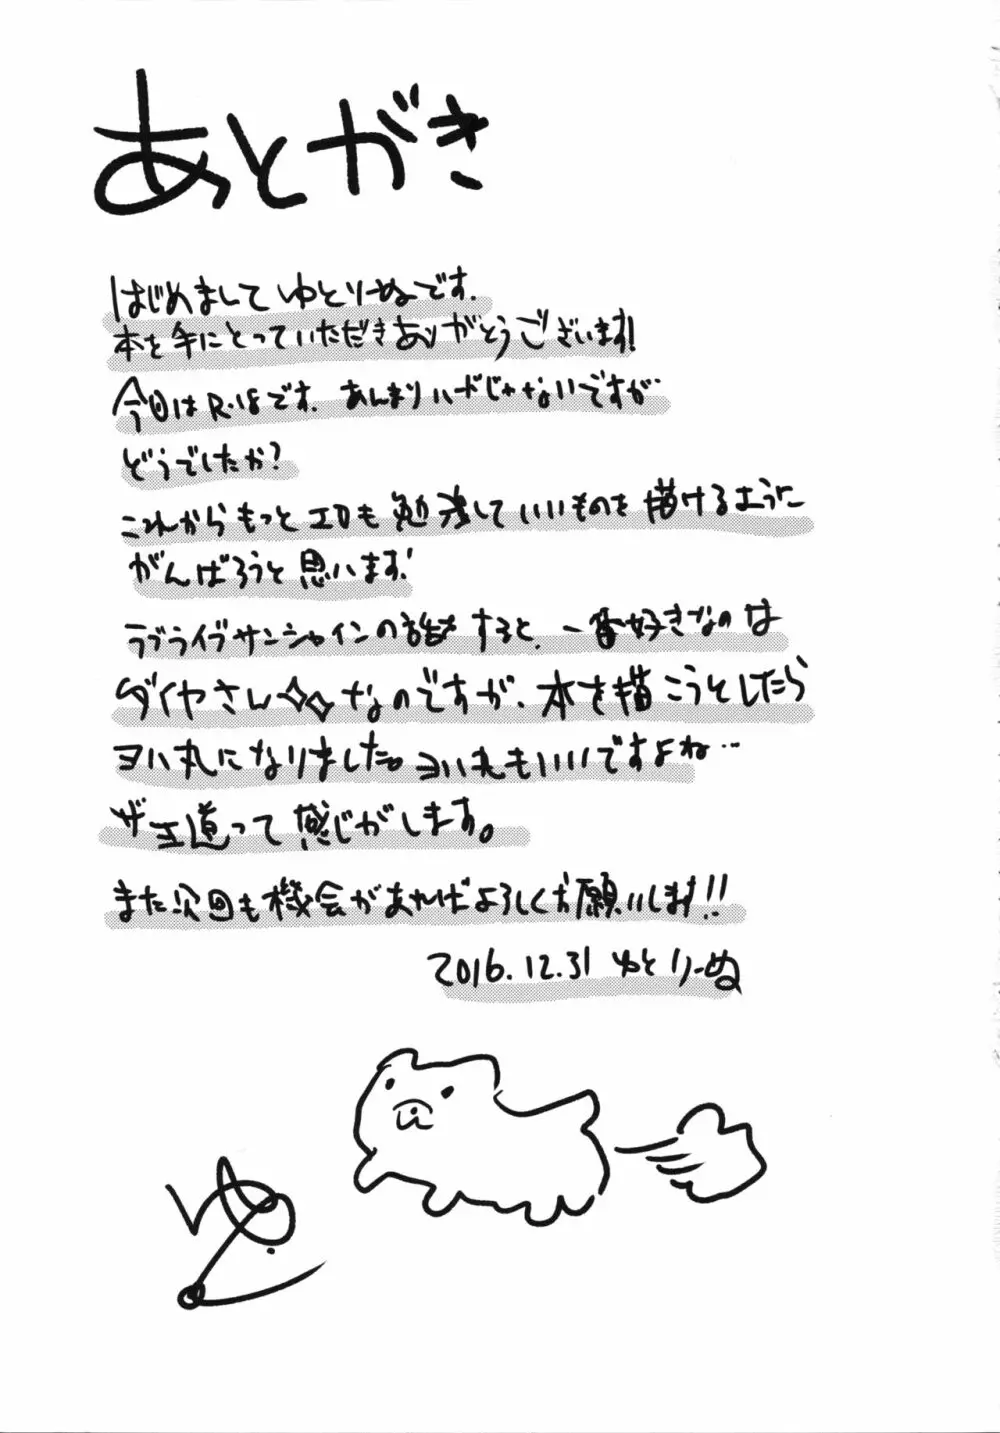 あとがき
はじめまして ゆとりーぬです.
本を手にとっていただきありがとうございます!
今回はR-18です. あんまりハードじゃないですが
どうでしたか?
これからもっとエロも勉強していいものを描けるように
がんばろうと思います!
ラブライブサンシャインの話をすると、一番好きなのは
ダイヤさん✧✧なのですが、本を描こうとしたら
ヨハ丸になりました。ヨハ丸もいいですよね…
ザ王道って感じがします。
また次回も機会があればよろしくお願いします!!
2016.12.31 ゆとりーぬ
ゆ